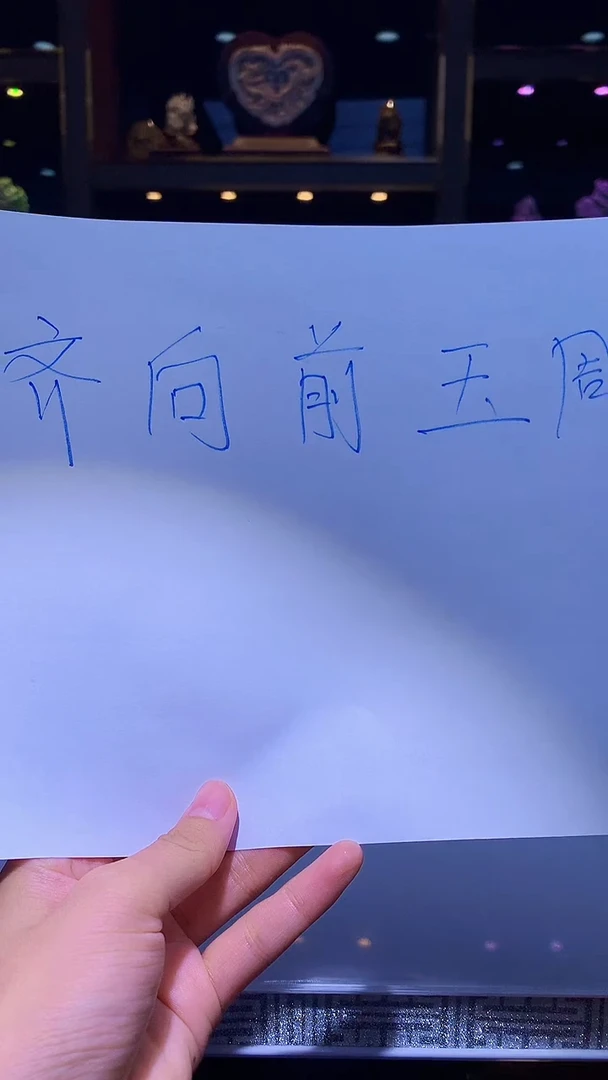 齐向前玉周